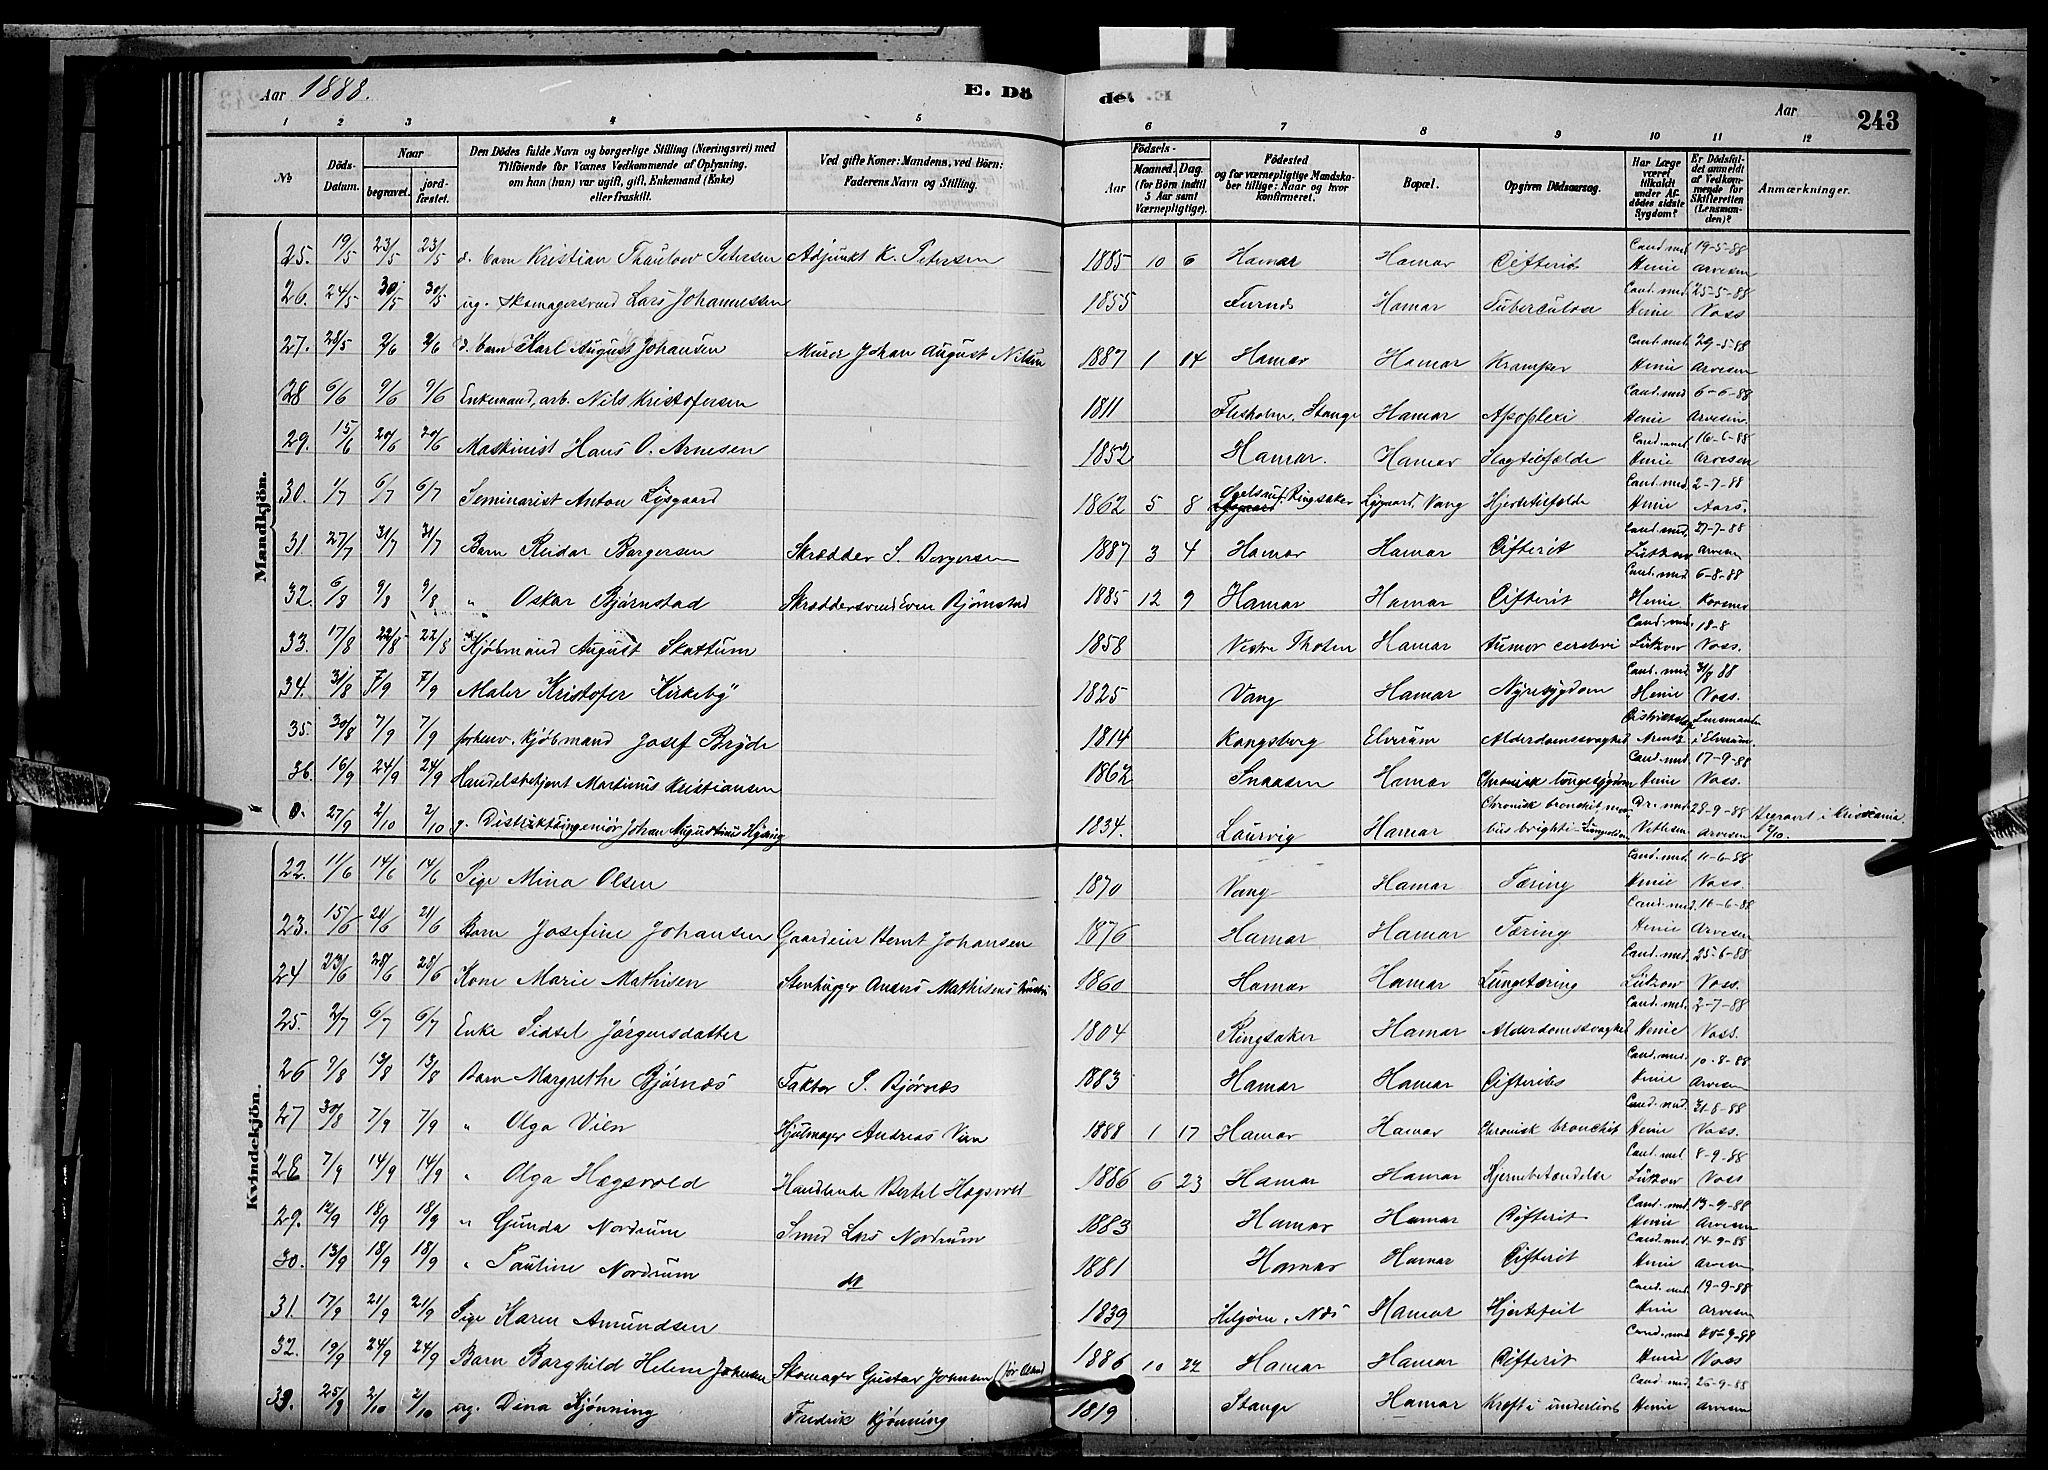 Aar 1888. E. Dö de. Aar 243
1 2 3 4 5 6 7 8 9 10 11 12
No Döds-Datum. Naar begravet. jord-fæstet. Den Dödes fulde Navn og borgerlige Stilling (Næringsvei) med Tilföiende for Voxnes Vedkommende af Oplysning, om han (hun) var ugift, gift, Enkemand (Enke) eller fraskilt. Ved gifte Koner: Mandens, ved Börn: Faderens Navn og Stilling. Födsels- Aar Maaned. Dag. (for Börn indtil 5 Aar samt Værnepligtige). Födested og for værnepligtige Mandskaber tillige: Naar og hvor konfirmeret. Bopæl. Opgiven Dödsaarsag. Har Læge været tilkaldt under Afdödes sidste Sygdom? Er Dödsfaldet anmeldt af Vedkommende for Skifteretten (Lensmanden)? Anmærkninger.
Mandkjön.
25. 19/5 23/5 23/5 d. barn Kristian Thaulow Petersen Adjunkt K. Petersen 1885 10 6 Hamar Hamar Difterit Cand. med. Henie 19-5-88 Arvesen
26. 24/5 30/5 30/5 ug. Skomagersvend Lars Johannessen 1855 Furnes Hamar Tuberculose Cand. med. Henie 25-5-88 Voss
27. 28/5 2/6 2/6 d. barn Karl August Johansen Murer Johan August Nilsen 1887 1 14 Hamar Hamar Kramper Cand. med. Henie 29-5-88 Arvesen
28 6/6 9/6 9/6 Enkemand, arb. Nils Kristofersen 1811 Stange Hamar Apoplexi Cand. med Henie 6-6-88 Arvesen
29. 15/6 20/6 20/6 Maskinist Hans O. Arnesen 1852 Hamar. Hamar Slagtilfælde Cand. med. Henie 16-6-88 Arvesen
30. 1/7 6/7 6/7 Seminarist Anton Lysgaard 1862 5 8 Ringsaker Lysgaard, Vang Hjertetilfælde Cand. med. Henie 2-7-88 Aars.
31 27/7 31/7 31/7 Barn Reidar Borgersen Skrædder S. Borgersen 1887 3 4 Hamar Hamar Difterit Cand. med. Lützow 27-7-88 Arvesen
32. 6/8 9/8 9/8 " Oskar Bjørnstad Skræddersvend Even Bjørnstad 1885 12 9 Hamar Hamar Difterit Cand. med Henie 6-8-88
33. 17/8 22/8 22/8 Kjøbmand August Skattum 1858 Vestre Thoten Hamar tumor cerebri Cand. med. Lützow 18-8 Voss.
34. 31/8 7/9 7/9 Maler Kristofer "Kirkeby" 1825 Vang Hamar Nyresygdom Cand. med Henie 31/8 88 Voss.
35. 30/8 7/9 7/9 forhenv. Kjøbmand Josef Bryde 1814 Kongsberg Elverum Alderdomssvaghed Distriktslæge Arentz Lensmanden i Elverum.
36. 16/9 24/9 24/9 Handelsbetjent Martinus Kristiansen 1862 Snaasen Hamar Chronisk lungesygdom Cand. med. Henie 17-9-88 Voss.
0. 27/9 2/10 2/10 g. Distriktsingeniør Johan Augustinus 1834. Laurvig Hamar Chronisk bronchit, morbus brighti Dr. med. Vetlesen 28-9-88 Arvesen Begravet i Kristiania 2/10.
Kvindekjön.
22. 11/6 14/6 14/6 Pige Mina Olsen 1870 Vang Hamar Tæring Cand. med. Henie 11-6-88 Voss.
23. 15/6 21/6 21/6 Barn Josefine Johansen Gaardeier Bernt Johansen 1876 Hamar Hamar Tæring Cand. med. Henie 16-6-88 Arvesen
24 23/6 28/6 28/6 Kone Marie Mathisen Stenhugger Anders Mathisens hustru 1860 Hamar Hamar Lungetæring Cand. med. Lützow 25-6-88 Voss.
25. 2/7 6/7 6/7 Enke Sidsel Jørgensdatter 1804 Ringsaker Hamar Alderdomssvaghed Cand. med. Henie 2-7-88 Voss.
26 9/8 13/8 13/8 Barn Margrethe Bjørnæs Faktor P. Bjørnæs 1883 Hamar Hamar Difteritis Cand. med. Henie 10-8-88 Arvesen
27 30/8 7/9 7/9 " Olga Vien Hjulmager Andreas Vien 1888 1 17 Hamar Hamar Chronisk bronchit Cand. med. Henie 31-8-88 Voss.
28 7/9 14/9 14/9 " Olga Hægsvold Handlende Bertel Hægsvold 1886 6 23 Hamar Hamar Hjernebetændelse Cand. med. Lützow 8-9-88 Voss
29. 12/9 18/9 18/9 " Gunda Nordrum Smed Lars Nordrum 1883 Hamar Hamar Difterit Cand. med. Henie 13-9-88 Arvesen
30. 13/9 18/9 18/9 " Pauline Nordrum do 1881 Hamar Hamar Difterit Cand. med. Henie 14-9-88 Arvesen
31. 17/9 21/9 21/9 Pige Karen Amundsen 1839 Næs Hamar Hjertefeil Cand. med. Henie 19-9-88 Arvesen
32. 19/9 24/9 24/9 Barn Borghild Helene Johnsen Skomager Gustav Johnsen 1886 10 Hamar Hamar Difterit Cand. med Henie 20-9-88 Voss
33 25/9 2/10 2/10 ug. Dina Kjønning Fredrik Kjønning 1819 Stange Hamar Kræft i underlivet Cand. med. Henie 26-9-88 Arvesen